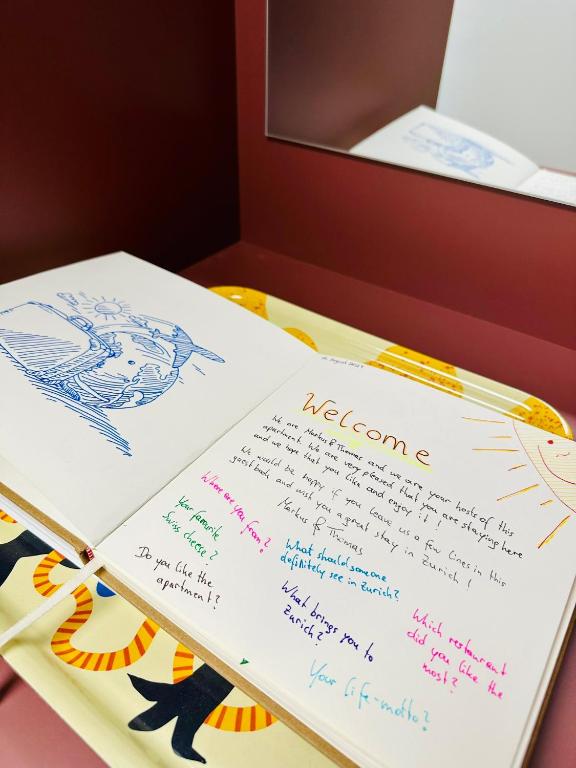 August
Welcome
We are Markus & Thomas and we are your hosts of this
apartment. We are very pleased that you are staying here
and we hope that you like and enjoy it!
We would be happy if you leave us a few lines in this
guestbook and wish you a great stay in Zurich!
Markus & Thomas
Where are you from?
Your favourite
Swiss cheese?
Do you like the
apartment?
What should someone
definitely see in Zurich?
What brings you to
Zurich?
Which restaurant
did you like the
most?
Your life-motto?